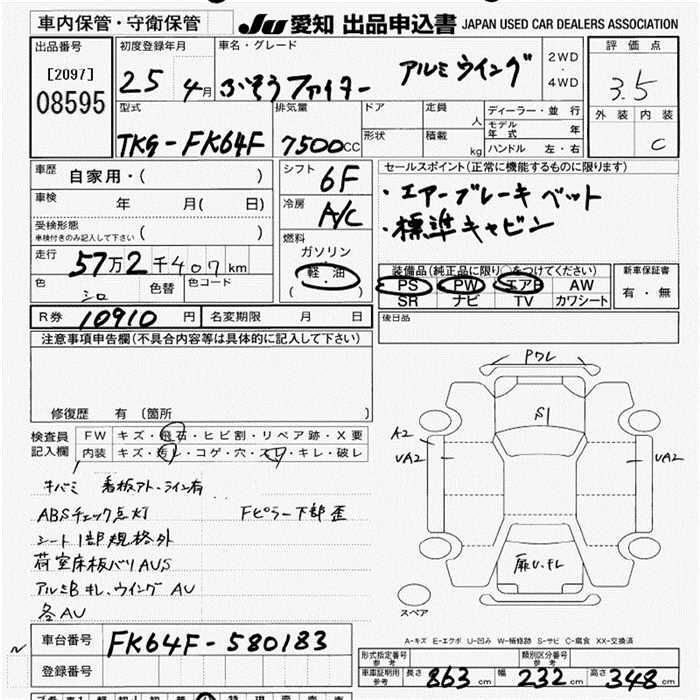 車内保管・守衛保管 JU 愛知 出品申込書 JAPAN USED CAR DEALERS ASSOCIATION
出品番号 [2097] 08595
初度登録年月 25 4月
車名・グレード ふそうファイター アルミウイング
2WD・4WD
評価点 3.5
外装 内装 C
型式 TKG-FK64F
排気量 7500CC
ドア 形状
定員 人
積載 kg
ディーラー・並行
モデル年式 年
ハンドル 左・右
車歴 自家用・( )
車検 年 月( 日)
受検形態 車検付きのみ記入して下さい ( )
走行 57万2千407km
色 シロ 色替 色コード
シフト 6F
冷房 A/C
燃料 ガソリン
軽・油
( )
セールスポイント(正常に機能するものに限ります)
・エアーブレーキ ベット
・標準キャビン
装備品(純正品に限り○をつけてください)
PS PW エアB AW
SR ナビ TV カワシート
新車保証書 有・無
R券 10910円 名変期限 月 日
後日品
注意事項申告欄(不具合内容等は具体的に記入して下さい)
修復歴 有 (箇所 )
検査員記入欄
FW キズ・飛石・ヒビ割・リペア跡・X要
内装 キズ・汚レ・コゲ・穴・スレ・キレ・破レ
キバミ 看板アト・ライン有
ABSチェック点灯 Fピラー下部歪
シート1部規格外
荷室床板バリAUS
アルミB キレ、ウイング AU
各AU
Pワレ
S1
A2
UA2
UA2
扉U、キレ
スペア
A-キズ E-エクボ U-凹み W-補修跡 S-サビ C-腐食 XX-交換済
車台番号 FK64F-580183
登録番号
形式指定番号 参考 類別区分番号 参考
車庫証明用 参考 長さ 863 cm 幅 232 cm 高さ 348 cm